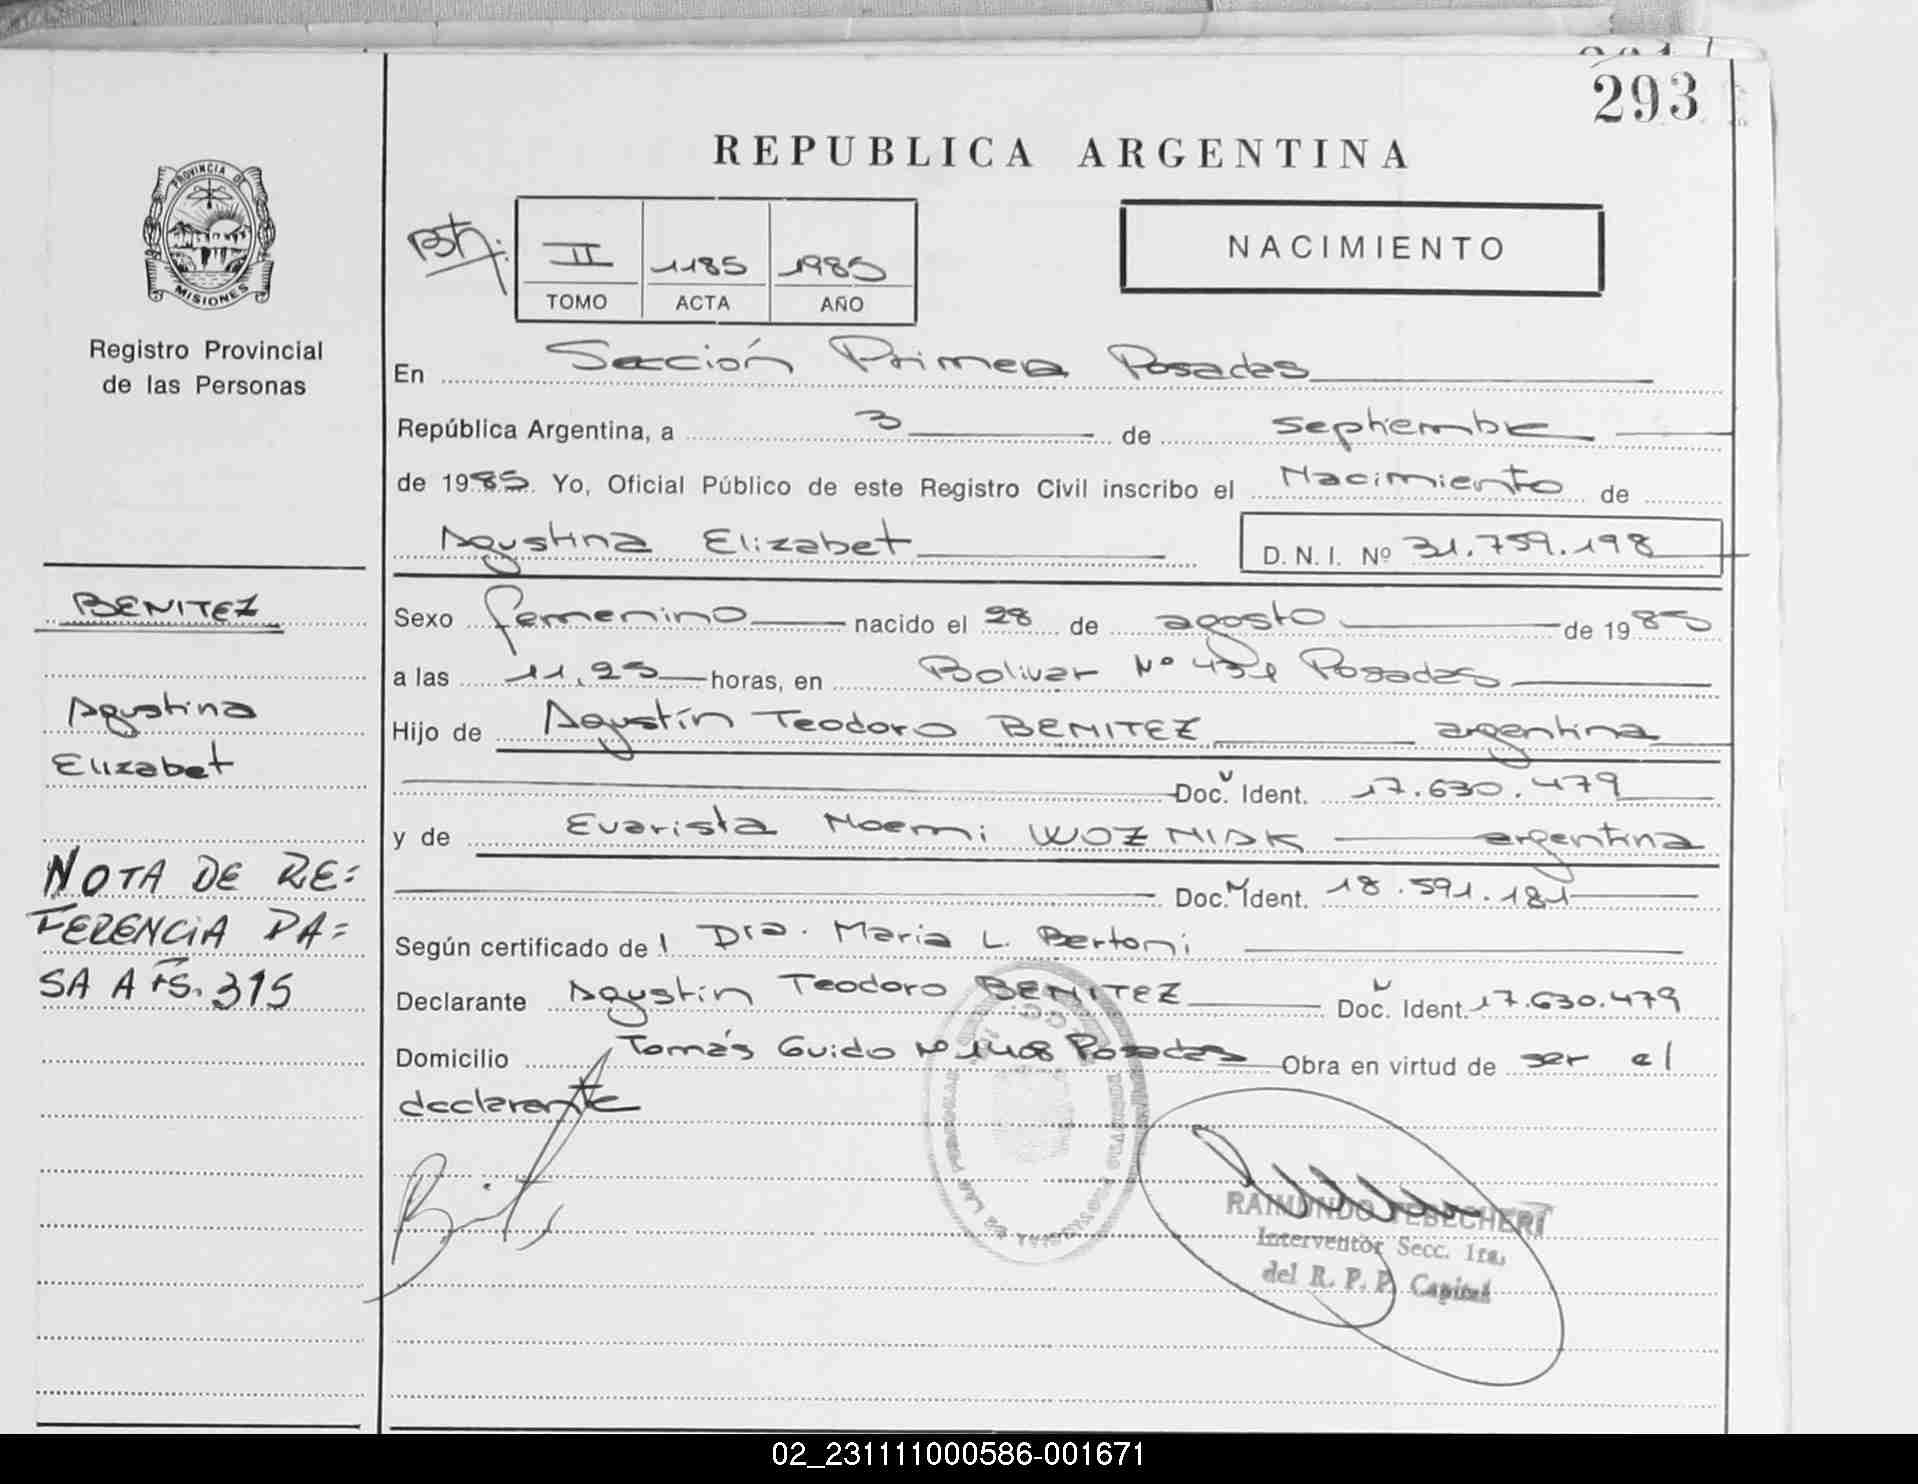 293
REPUBLICA ARGENTINA
PROVINCIA DE
MISIONES
Registro Provincial
de las Personas
II 1185 1985
TOMO ACTA AÑO
NACIMIENTO
En Sección Primera Posadas
República Argentina, a 3 de septiembre
de 1985. Yo, Oficial Público de este Registro Civil inscribo el Nacimiento de
Agustina Elizabet D. N. I. Nº 31.759.198
BENITEZ
Agustina
Elizabet
NOTA DE RE=
FERENCIA PA=
SA A FS. 315
Sexo femenino nacido el 28 de agosto de 1985
a las 11,25 horas, en Bolivar Nº Posadas
Hijo de Agustín Teodoro BENITEZ argentina
Doc. Ident. 17.630.479
y de Evarista Noemi WOZNIAK argentina
Doc. Ident. 18.591.181
Según certificado de l Dra. Maria L. Bertoni
Declarante Agustin Teodoro BENITEZ Doc. Ident. 17.630.479
Domicilio Tomás Guido Nº 1408 Posadas Obra en virtud de ser el
declarante
RAIMUNDO TEBECHERI
Interventor Secc. 1ra.
del R. P. P. Capital
02_231111000586-001671